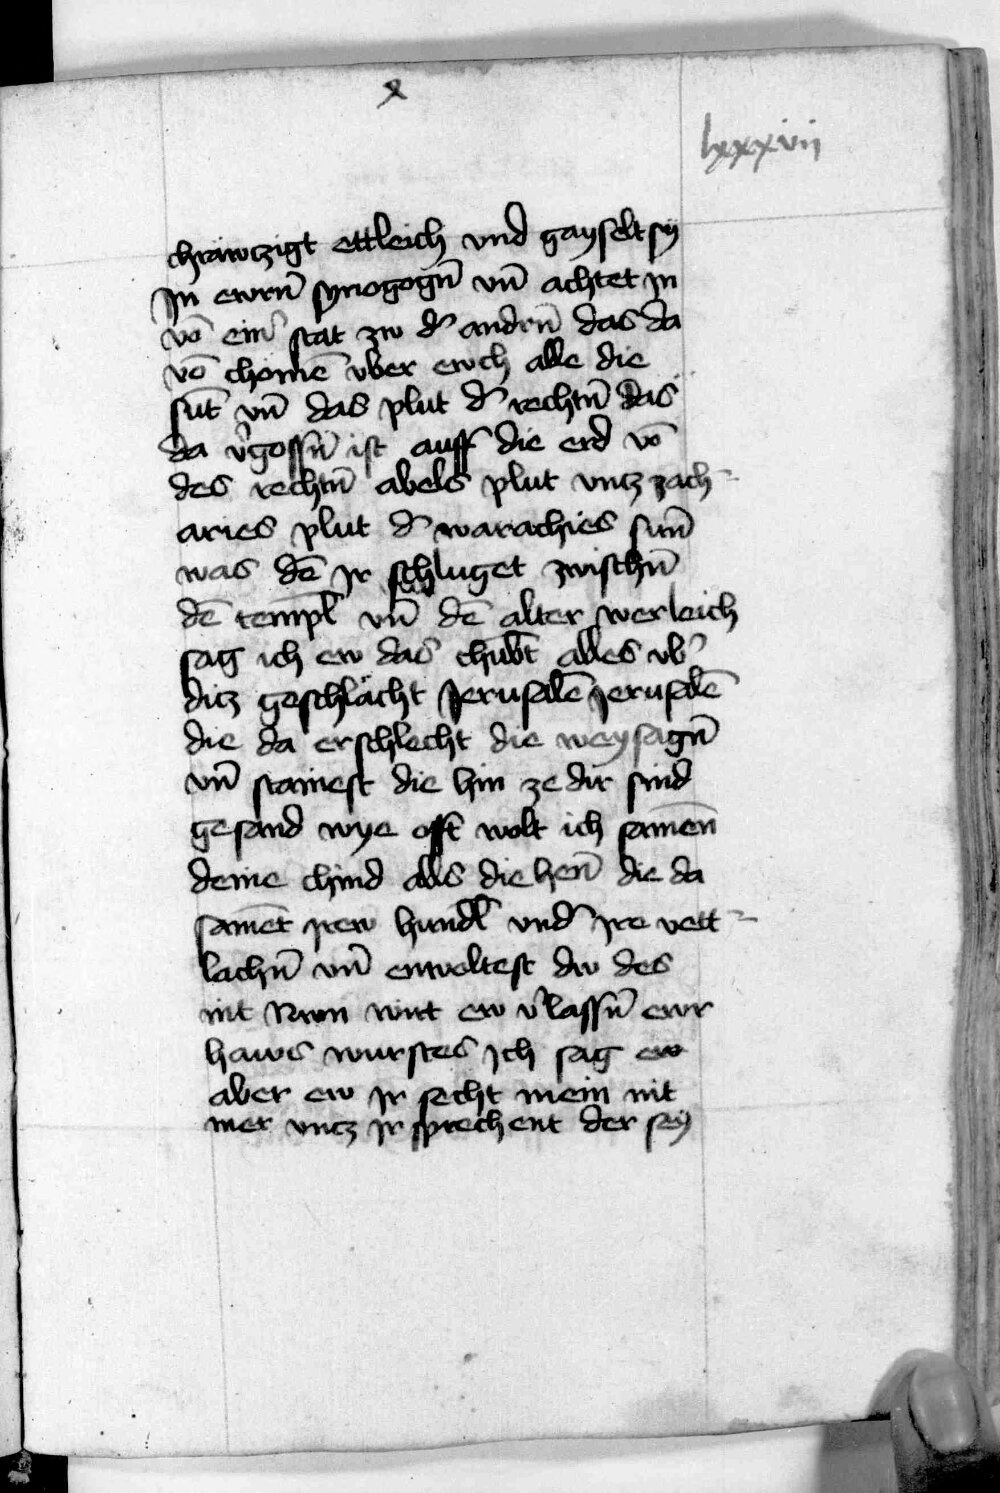 x
lxxxvii
chräwczigt ettleich vnd gayselt sy
In ewrn̄ synogogn̄ vn̄ achtet In
vō ein̉ stat zw d̉ andrn̄ das da
vō chomē vber ewch alle die
sūt vn̄ das plut d̉ rechtn̄ das
da v̉gossn̄ ist auff die erd vō
des rechtn̄ abels plut vntz zach
aries plut d̉ warachies sun̄
was dē Ir schluget zwischn̄
dē templ̄ vn̄ dē alter werleich
sag ich ew das chūbt alles vb̉
ditz geschlächt Jerusalē Jerusalē
die da erschlecht die weysagn̄
vn̄ stainest die hin ze dir sind
gesand wye offt wolt ich samēn
deine chind alls die henn̄ die da
samēt irew hundl̄ vnd̉ ire vett
lachn̄ vn̄ enwoltest dw des
nit Nwn wirt ew v̉lassn̄ ewr
haws wurstes Ich sag ew
aber ew Ir secht mein nit
mer vntz Ir sprechent der sey